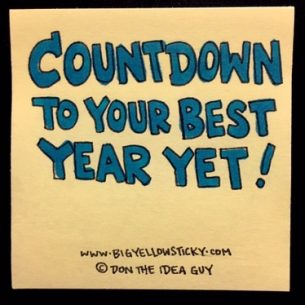 COUNTDOWN
TO YOUR BEST
YEAR YET!
WWW.BIGYELLOWSTICKY.COM
© DON THE IDEA GUY